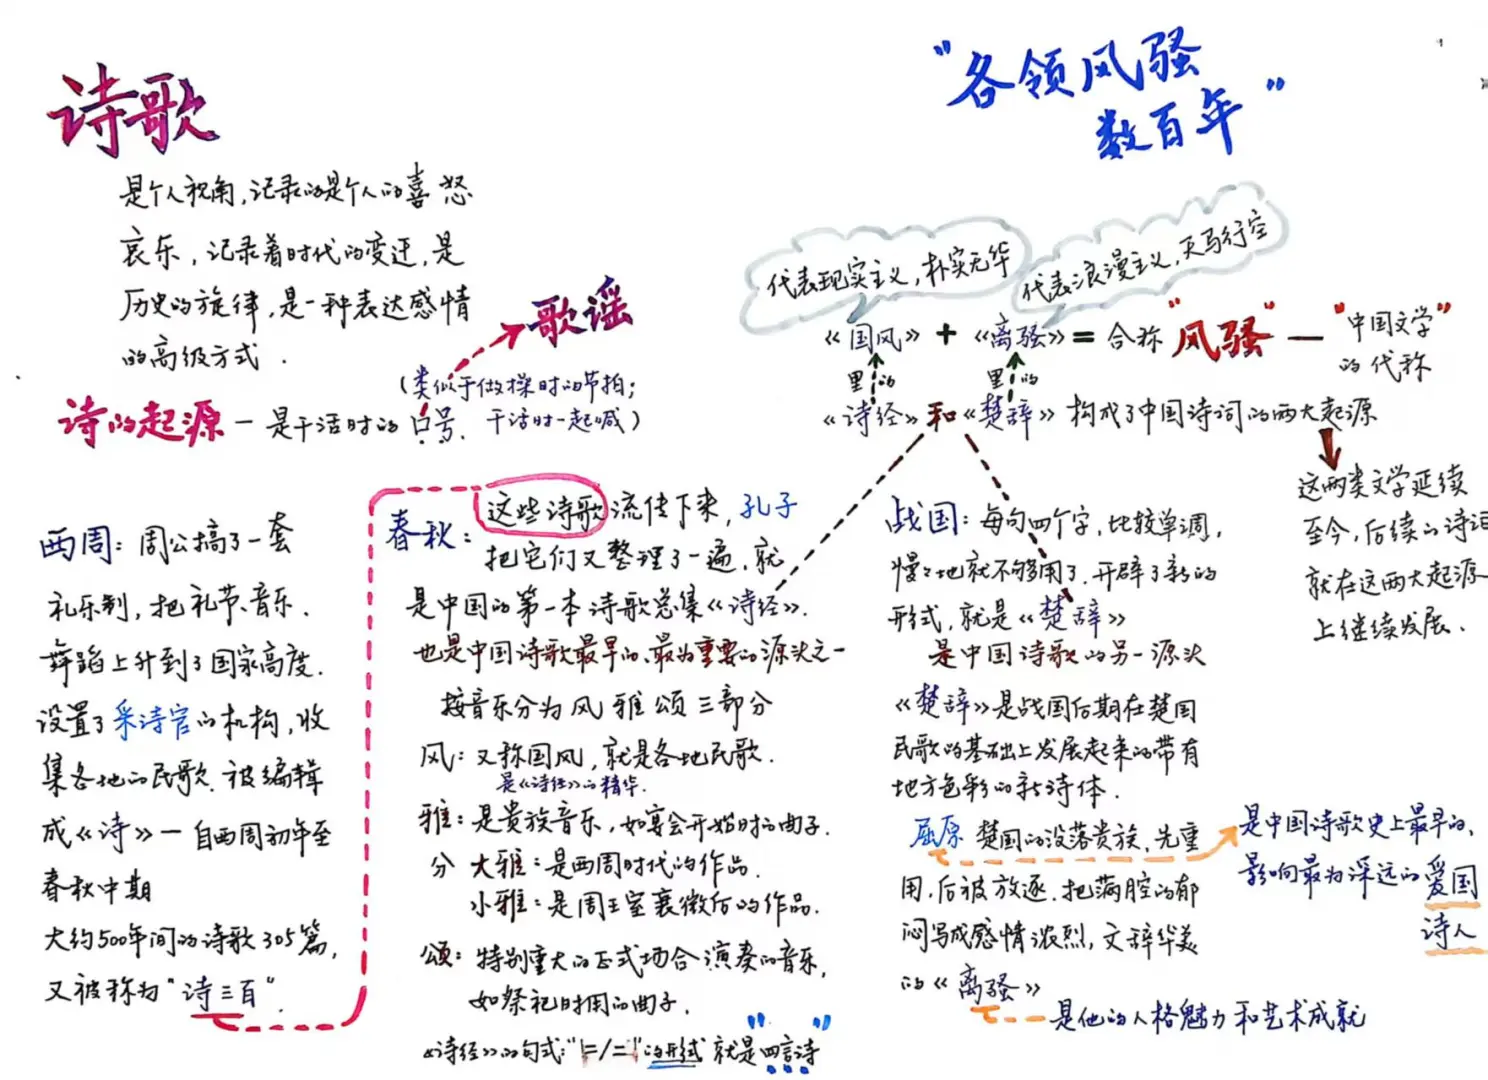 诗歌
是个人视角,记录的是个人的喜怒
哀乐,记录着时代的变迁,是
历史的旋律,是一种表达感情
的高级方式.
歌谣
(类似于做操时的节拍;
诗的起源 — 是干活时的口号. 干活时一起喊)
西周: 周公搞了一套
礼乐制,把礼节、音乐、
舞蹈上升到了国家高度.
设置了采诗官的机构,收
集各地的民歌.被编辑
成《诗》— 自西周初年至
春秋中期
大约500年间的诗歌305篇,
又被称为"诗三百".
春秋: 这些诗歌流传下来,孔子
把它们又整理了一遍,就
是中国的第一本诗歌总集《诗经》.
也是中国诗歌最早的、最为重要的源头之一
按音乐分为风 雅 颂 三部分
风: 又称国风,就是各地民歌.
是《诗经》的精华.
雅: 是贵族音乐,如宴会开始时的曲子.
分 大雅: 是西周时代的作品.
小雅: 是周王室衰微后的作品.
颂: 特别重大的正式场合演奏的音乐,
如祭祀时用的曲子.
《诗经》的句式:"|=/="的形式 就是"四言诗"
"各领风骚
数百年"
代表现实主义,朴实无华
代表浪漫主义,天马行空
《国风》+《离骚》= 合称"风骚"—"中国文学"
的代称
里的 里的
《诗经》和《楚辞》构成了中国诗词的两大起源
这两类文学延续
至今,后续的诗词
就在这两大起源
上继续发展.
战国: 每句四个字,比较单调,
慢々地就不够用了.开辟了新的
形式,就是《楚辞》
是中国诗歌的另一源头
《楚辞》是战国后期在楚国
民歌的基础上发展起来的带有
地方色彩的新诗体.
屈原 楚国的没落贵族,先重
用,后被放逐.把满腔的郁
闷写成感情浓烈,文辞华美
的《离骚》
是他的人格魅力和艺术成就
是中国诗歌史上最早的、
影响最为深远的爱国
诗人